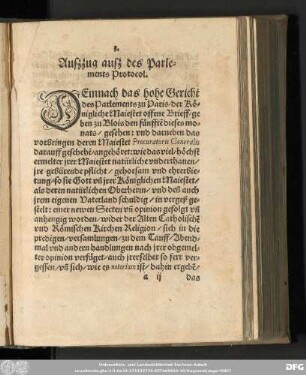 Außzug auß des Parlements
Protocol.
DEmnach das hohe Gericht
des Parlements zu Paris/ der Kö-
nigliche Maiestet offene Brieff/ ge
ben zu Blois den fünfften dieses mo-
nats/ gesehen: vnd darneben das
vorbringen deren Maiestet Procuratorn Generaln
darauff geschehe/ angehöret: wie das viel höchst
ermelter jrer Maiestet natürliche vnderthanen/
jre gebürende pflicht/ gehorsam vnd ehrerbie-
tung/ so sie Gott vñ jrer Königlichen Maiestet/
als deren natürlichen Oberherrn/ vnd deß auch
jrem eigenen Vaterland schuldig/ in vergeß ge-
stelt: einer newen Secten vñ opinion gefolgt vñ
anhengig worden/ wider der Alten Catholischẽ
vnd Römischen Kirchen Religion/ sich in die
predigen/ versamlungen/ zu dem Tauff/ Abend-
mal vnd andern handlungen nach jrer obgemel-
ter opinion verfüget/ auch jrer selbst so ferr ver-
gessen/ vñ sich/ wie es notorium ist/ dahin ergebẽ/
a ij das